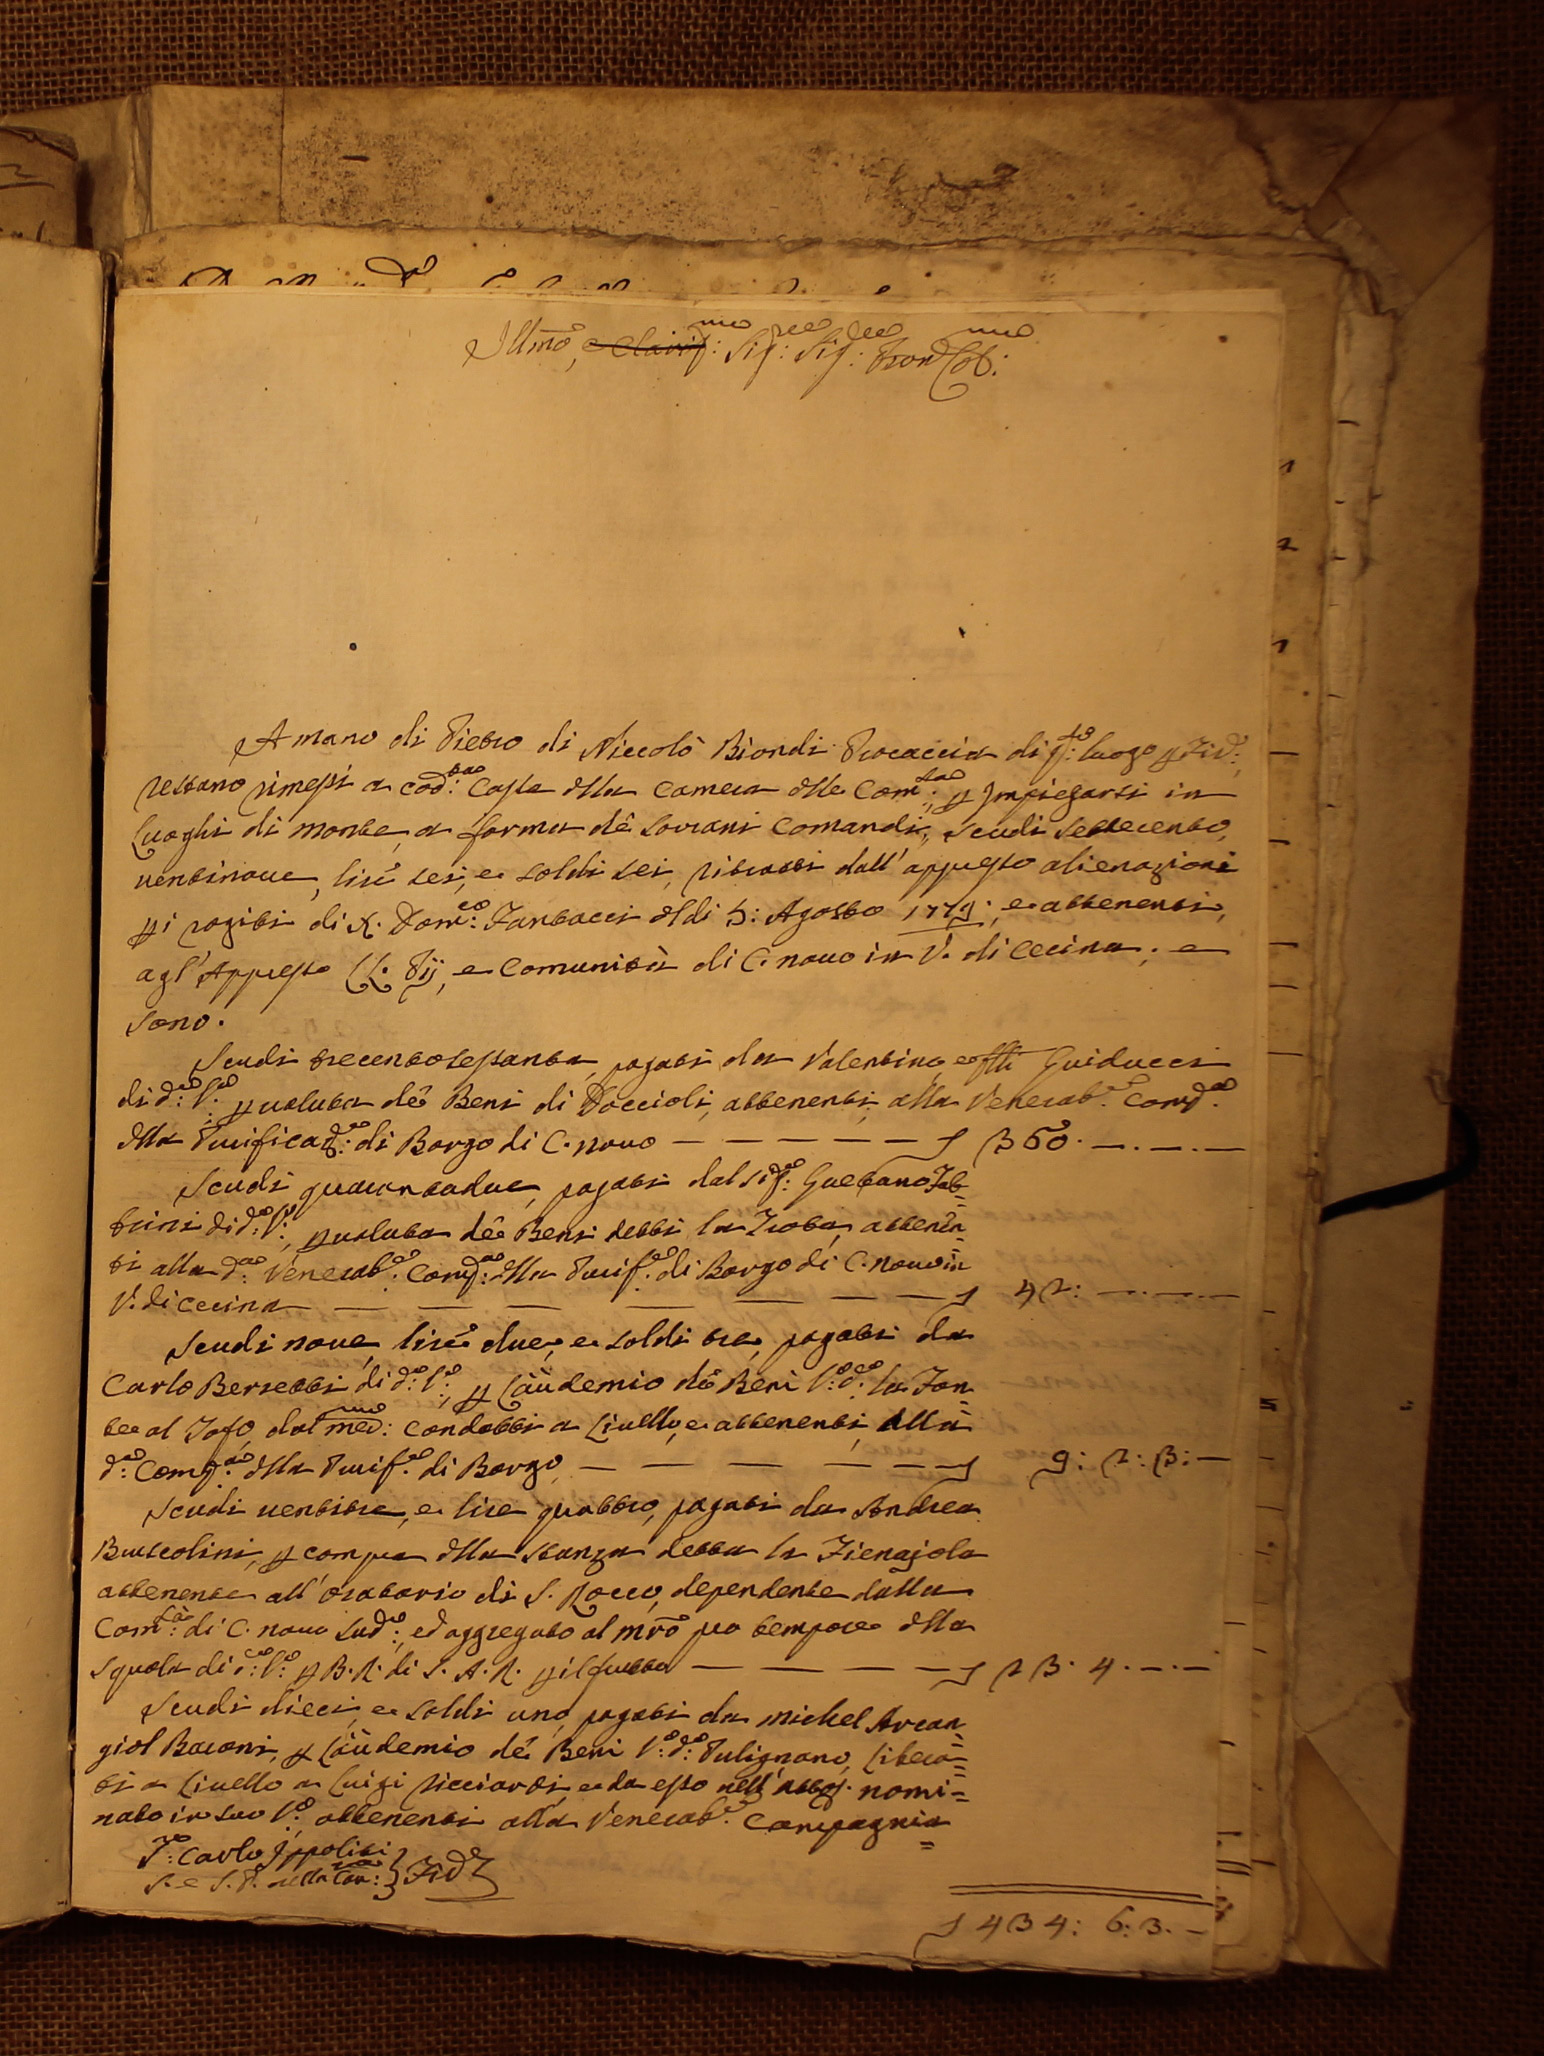 Illmo, e Clariss: Sig: Sig: Pron Col:
A mano di Pietro di Niccolò Biondi Procaccia di qto: luogo p Fid:,
restano rimessi a cod:ta Cassa dlla Camera dlle Comtà:, p Impiegarsi in
Luoghi di monte, a forma dè Sovrani Comandi, scudi settecento,
ventinove, lire sei, e soldi sei, ritratti dall' appresso alienazioni
p i rogiti di S. Domco: Fantacci dl dì 5: Agosto 1779:, e attenenti,
agl' Appresso LL. Pij, e Comunità di C. nuovo in V. di Cecina; e
sono.
Scudi trecentosessanta, pagati da Valentino, e flli Guiducci
di do: Lo:, p valuta dè Beni di Doccioli, attenenti, alla Venerabe. Compa.
dlla Purificaze: di Borgo di C. nuovo — — — — — ſ 360. —. —. —
Scudi quarantadue, pagati dal Sigr: Gaetano Fab=
brini di do: Lo:, p valuta dè Beni detti la Troba, attenen=
ti alla da: Venerabe. Compa: dlla Purife. di Borgo di C. nuovo in
V. di Cecina — — — — — — — ſ 42: —. —. —
Scudi nove, lire due, e soldi tre, pagati da
Carlo Bersotti di do: Lo:, p Laudemio dè Beni Lo: do: la Fon=
te al Tofo, dal medmo: condotti a Livello, e attenenti, alla
da: Compa. dlla Purife. di Borgo, — — — — — ſ 9: 2: 3: —
Scudi ventitre, e lire quattro, pagati da Andrea
Bruscolini, p compra dlla stanza detta la Fienajola
attenente all' oratorio di S. Rocco, dependente dalla
Comtà: di C. nuovo Sudo:, ed aggregato al mro pro tempore dlla
Squola di do: Lo: p B. R. di S. A. R. p il frutto — — — — ſ 23. 4. —. —
Scudi dieci, e soldi uno, pagati da Michel Arcan=
giol Baroni, p Laudemio dè Beni Lo: do: Pulignano, Libera=
ti a Livello a Luigi Ricciardi, e da esso nell' attoj. nomi=
nato in suo Lo:, attenenti alla Venerabe. Compagnia
Fo: Carlo Ippoliti
S. e S. P. della Can: } Fid
ſ 434: 6: 3. —